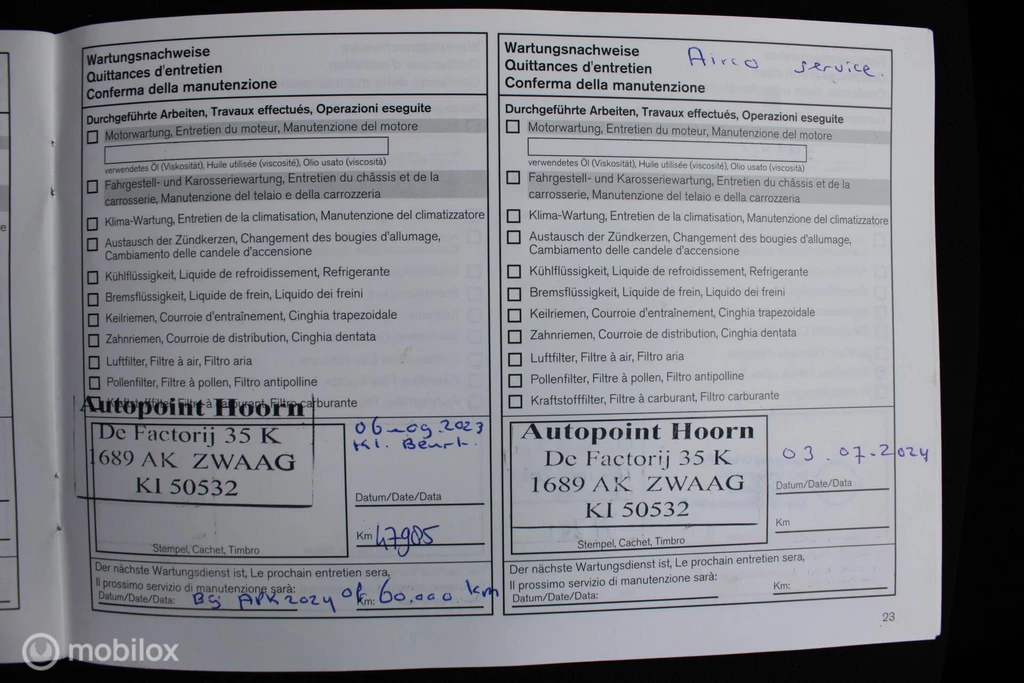 Wartungsnachweise
Quittances d'entretien
Conferma della manutenzione
Durchgeführte Arbeiten, Travaux effectués, Operazioni eseguite
Motorwartung, Entretien du moteur, Manutenzione del motore
verwendetes Öl (Viskosität), Huile utilisée (viscosité), Olio usato (viscosità)
Fahrgestell- und Karosseriewartung, Entretien du châssis et de la
carrosserie, Manutenzione del telaio e della carrozzeria
Klima-Wartung, Entretien de la climatisation, Manutenzione del climatizzatore
Austausch der Zündkerzen, Changement des bougies d'allumage,
Cambiamento delle candele d'accensione
Kühlflüssigkeit, Liquide de refroidissement, Refrigerante
Bremsflüssigkeit, Liquide de frein, Liquido dei freini
Keilriemen, Courroie d'entraînement, Cinghia trapezoidale
Zahnriemen, Courroie de distribution, Cinghia dentata
Luftfilter, Filtre à air, Filtro aria
Pollenfilter, Filtre à pollen, Filtro antipolline
Kraftstofffilter, Filtre à carburant, Filtro carburante
Autopoint Hoorn
De Factorij 35 K
1689 AK ZWAAG
KI 50532
06-09-2023
Kl. Beurt.
Datum/Date/Data
Km 47985
Stempel, Cachet, Timbro
Der nächste Wartungsdienst ist, Le prochain entretien sera,
Il prossimo servizio di manutenzione sarà:
Datum/Date/Data: Bij APK 2024 of Km: 60.000 km
Wartungsnachweise
Quittances d'entretien
Conferma della manutenzione
Airco service.
Durchgeführte Arbeiten, Travaux effectués, Operazioni eseguite
Motorwartung, Entretien du moteur, Manutenzione del motore
verwendetes Öl (Viskosität), Huile utilisée (viscosité), Olio usato (viscosità)
Fahrgestell- und Karosseriewartung, Entretien du châssis et de la
carrosserie, Manutenzione del telaio e della carrozzeria
Klima-Wartung, Entretien de la climatisation, Manutenzione del climatizzatore
Austausch der Zündkerzen, Changement des bougies d'allumage,
Cambiamento delle candele d'accensione
Kühlflüssigkeit, Liquide de refroidissement, Refrigerante
Bremsflüssigkeit, Liquide de frein, Liquido dei freini
Keilriemen, Courroie d'entraînement, Cinghia trapezoidale
Zahnriemen, Courroie de distribution, Cinghia dentata
Luftfilter, Filtre à air, Filtro aria
Pollenfilter, Filtre à pollen, Filtro antipolline
Kraftstofffilter, Filtre à carburant, Filtro carburante
Autopoint Hoorn
De Factorij 35 K
1689 AK ZWAAG
KI 50532
03.07-2024
Datum/Date/Data
Km
Stempel, Cachet, Timbro
Der nächste Wartungsdienst ist, Le prochain entretien sera,
Il prossimo servizio di manutenzione sarà:
Datum/Date/Data: Km:
23
mobilox